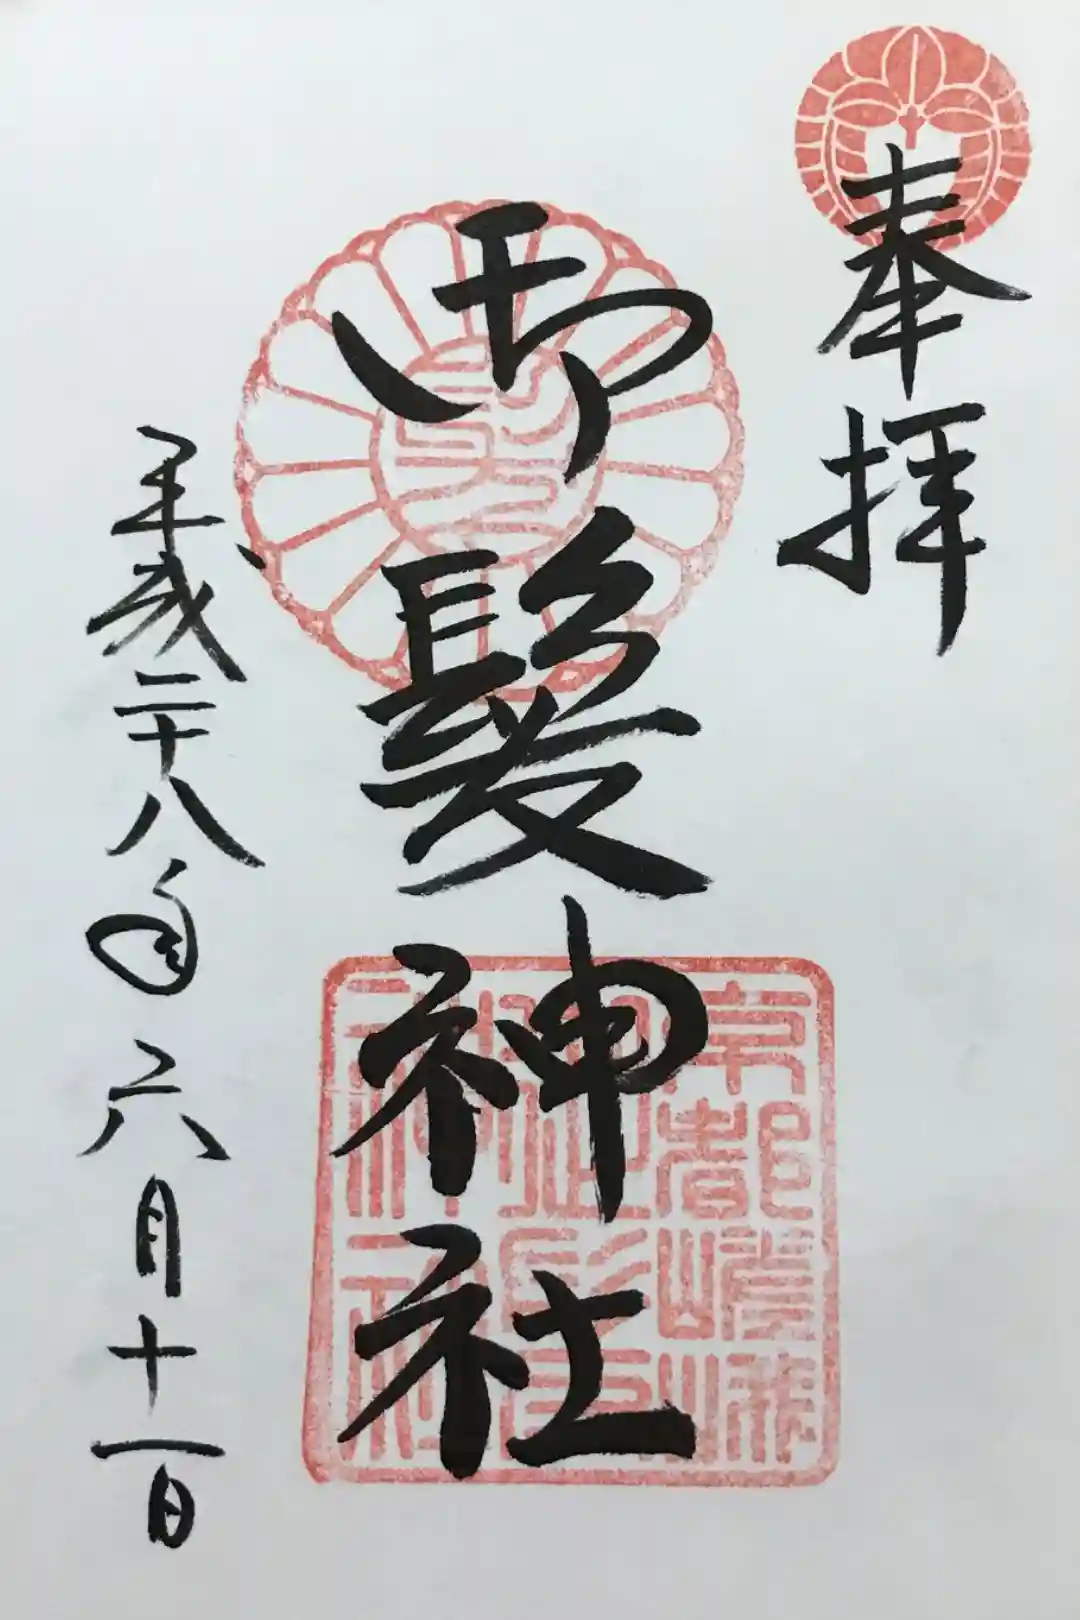 奉拝
御髪神社
京都嵯峨
御髪
神社
平成二十八年六月十一日